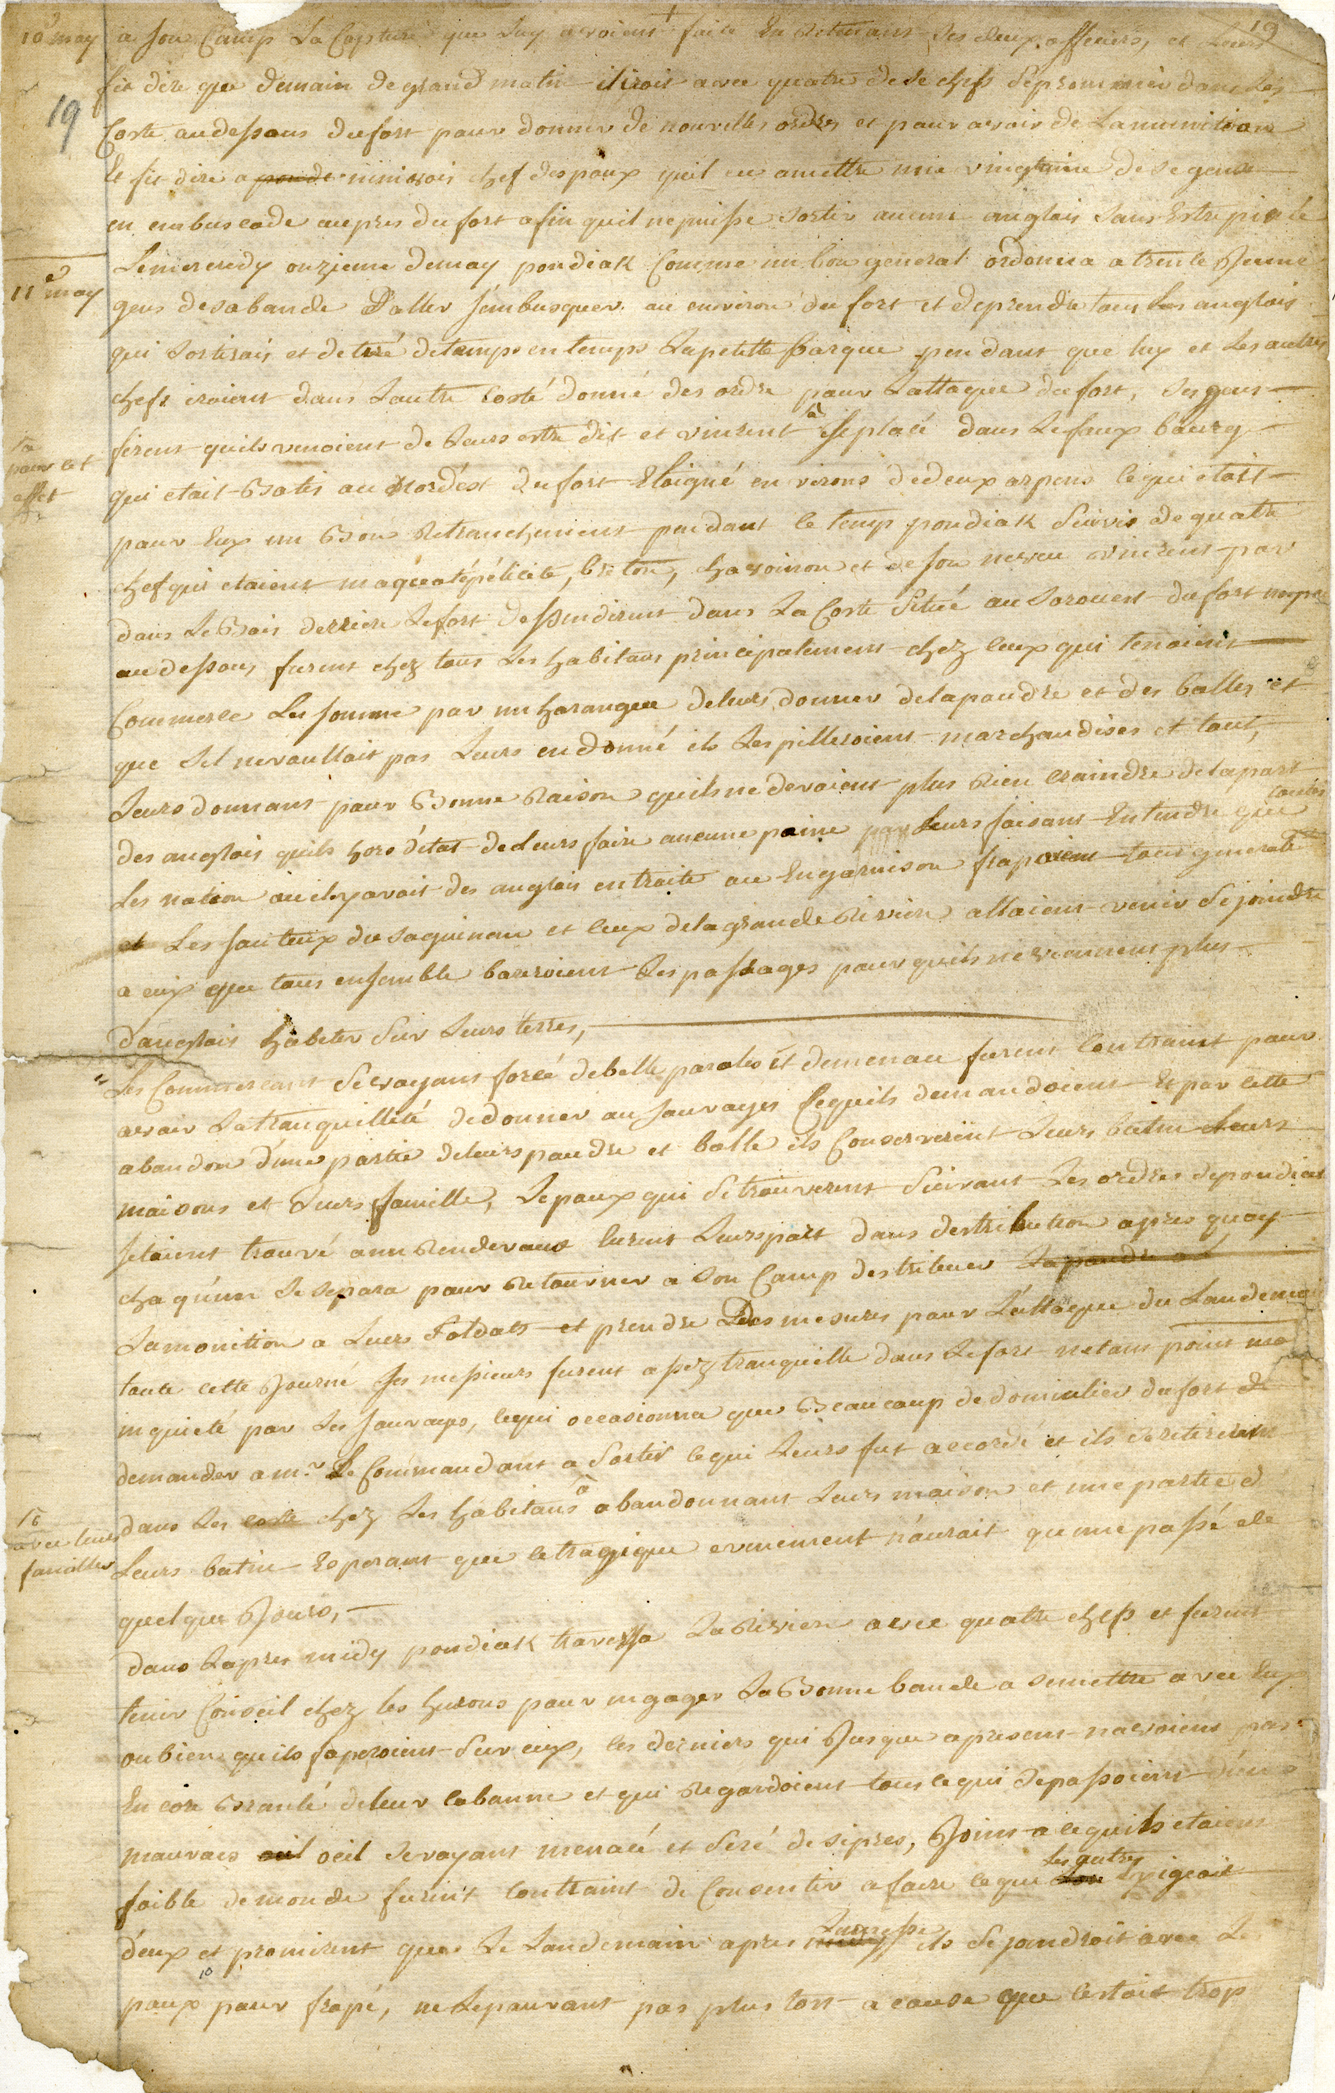 19
10e may a son Camp La Capture que Luy avoient faite En retenant Les deux officiers, et Leurs
fit dire que demain de grand matin il iroit avec quatre de se chefs Sepromener dans Les
19
Coste audessous dufort pour donner de nouvelles ordres et pour avoir de Lamunition
Et fit dire a pondi ninivois chef despoux quil eu amettre une vingtaine de se gens
en embuscade aupres du fort afin quil nepuisse sortir aucun anglois sans Estre
11e may
Lemercredy onzieme demay pondiak Comme un bon general ordonna a trente Jeune
gens desabande D'aller sembusquer au environ du fort et deprendre tous Les anglois
qui sortirais et detiré detemps entemps Lapetitte Barque pendant que luy et Les autres
chefs iroient dans Lautre Costé donné des ordre pour Lattaque dufort, ses gens
firent quils venoient de Leurs estre dit et vinrent a seplacé dans Lefaux bourg
a pour cet effet
qui etait Batis au Nordést du fort Eloigné environs dedeux arpens lequi etoit
pour Eux un Bon Retranchement pendant le temp pondiak Suivis dequatre
chef qui etaient maquatépélicité, breton, chavoinon et deson neveu vinrent par
dans Le Bois derriere Lefort dessendirent dans La Coste Situé au Sorouest dufort un peu
audessous, furent chez tous Les habitans principalement chez ceux qui tenoient
Commerce Les sommé par un harangue deleurs donner delapoudre et des balles et
que Sil nevoullait pas Leurs endonné ils Lespilleroient marchandises et tout,
Leurs donnans pour Bonne Raison quils ne devoient plus Rien craindre delapart
des anglois quils hors détat deleurs faire aucune paine Leurs faisans Entendre que toutes
Les nation ou ilyavoit des anglois entraite ou Engarnison frapoient tous generale
et Les sauteux du saguinau et ceux delagrande Riviere allaient venir Sejoindre
a eux que tous ensemble bareroient Les passages pourquils neviennent plus
danglois habiter Sur Leurs terres,
Les Commercans Sevoyans forcé debelle paroles et demenace furent Contraint pour
avoir Latranquillité dedonner au sauvages Cequils demandoient Et par Cette
abandon d'une partie deleurs poudre et balle ils Conserverent Leurs butin et leurs
maisons et Leurs famille, Lepoux qui Setrouverent Suivant Les ordres depondiak
setaient trouvé aun Rendevous eurent Leurspart dans destribution apres quoy
chaqúun Se separa pour Retourner a son Camp destribuer Lapoudre
Lamonition a Leurs Soldats et prendre Des mesures pour Lattaque du Landemain
toute cette Journé Les messieurs furent assez tranquille dans Lefort netans point
inquieté par Les sauvages, cequi occasionna que Beaucoup dedomicilier dufort de
demander a mr. Le Commandant a Sortir cequi Leurs fut accordé et ils seretirerent
a avec leurs familles
dans Les coste chez Les habitans a abandonnant Leurs maison et une partie d
Leurs butin Esperant que letragique evenement n'aurait qu'une passé de
quelque Jours,
dans Lapres midy pondiak traversa La Riviere avec quatre chefs et furent
tenir Conseil chez les hurons pour engager La Bonne bande a semettre avec Eux
oubien quils faperoient Sur eux, les derniers qui Jusque apresent navoient pas
Encore Branlé deleur cabanne et qui Regardoient tous cequi Sepassoient d'un
mauvais oeil Sevoyans menacé et Seré desipres, Joint a cequils etaiens
faible demonde furent Contraint de Consentir afaire ceque Les autres Exigeoit
d'eux et promirent que Le Landemain apres Lamesse ils Sejoindroit avec Le
poux pour frapé, ne Lepouvant pas plus tost a cause que cestoit trop